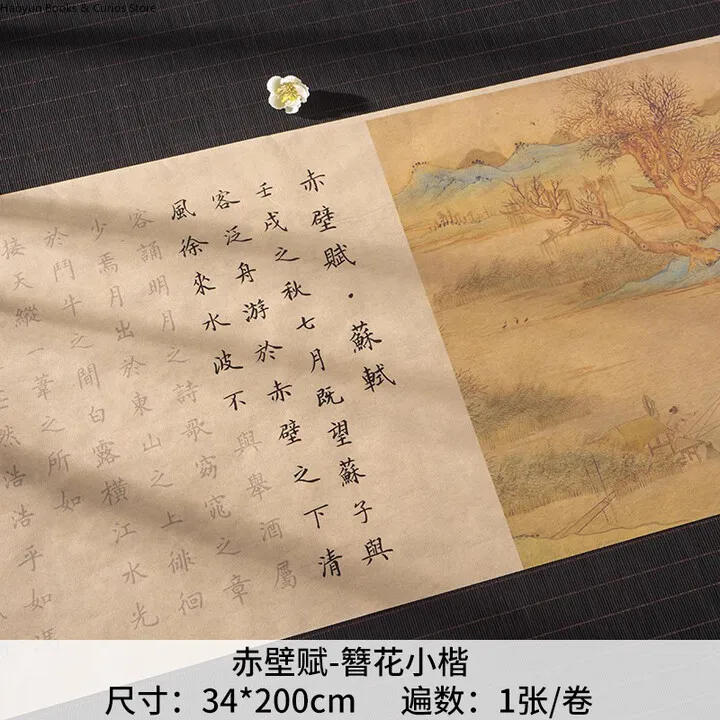 Haoyun Books & Curios Store
赤壁賦·蘇軾
壬戌之秋七月既望蘇子與
客泛舟游於赤壁之下清
風徐來水波不興舉酒屬
客誦明月之詩歌窈窕之章
少焉月出於東山之上徘徊
於鬥牛之間白露橫江水光
接天縱一葦之所如
然浩浩乎如馮
赤壁赋-簪花小楷
尺寸：34*200cm 遍数：1张/卷